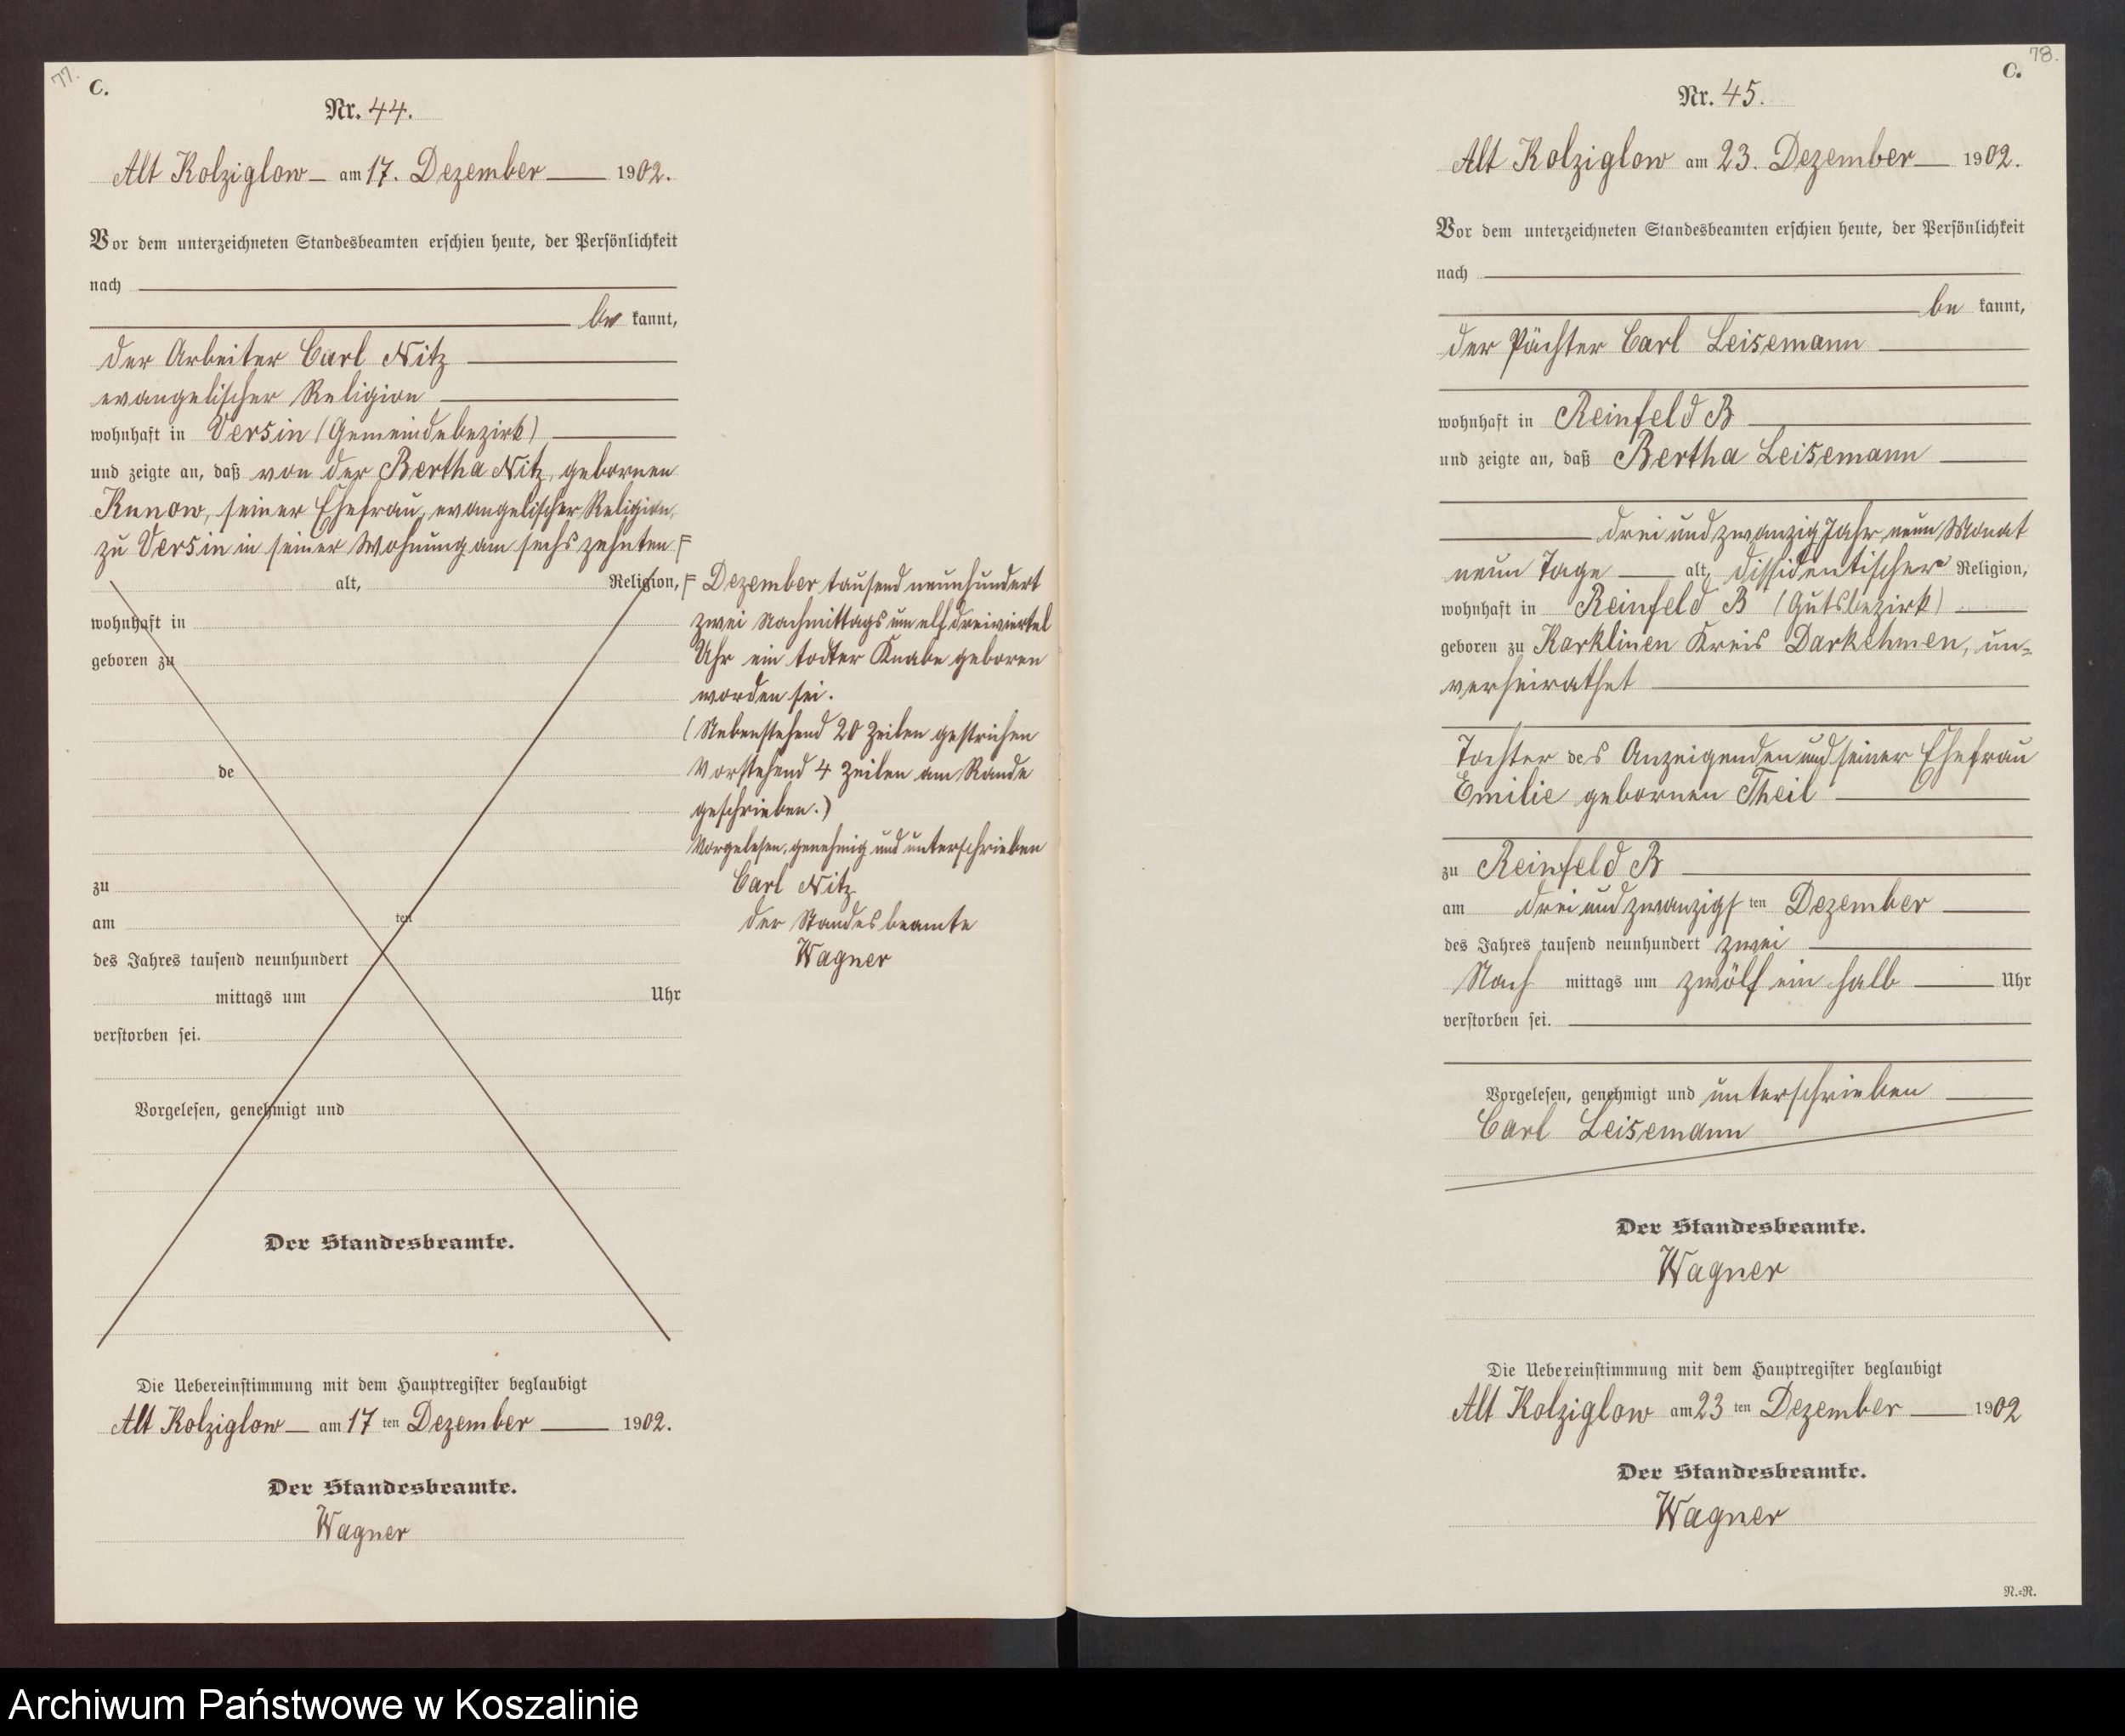 77.
C.
Nr. 44.
Alt Kolziglow am 17. Dezember 1902.
Vor dem unterzeichneten Standesbeamten erschien heute, der Persönlichkeit
nach
be kannt,
der Arbeiter Carl Nitz
evangelischer Religion
wohnhaft in Versin (Gemeindebezirk)
und zeigte an, daß von der Bertha Nitz, gebornen
Kunow, seiner Ehefrau, evangelischer Religion,
zu Versin in seiner Wohnung am sechszehnten
alt, Religion,
wohnhaft in
geboren zu
de
zu
am ten
des Jahres tausend neunhundert
mittags um Uhr
verstorben sei.
Vorgelesen, genehmigt und
Der Standesbeamte.
Dezember tausend neunhundert
zwei Nachmittags um elf dreiviertel
Uhr ein todter Knabe geboren
worden sei.
(Nebenstehend 20 Zeilen gestrichen
Vorstehend 4 Zeilen am Rande
geschrieben.)
Vorgelesen, genehmig und unterschrieben
Carl Nitz
der Standesbeamte
Wagner
Die Uebereinstimmung mit dem Hauptregister beglaubigt
Alt Kolziglow am 17 ten Dezember 1902.
Der Standesbeamte.
Wagner
78.
C.
Nr. 45.
Alt Kolziglow am 23. Dezember 1902.
Vor dem unterzeichneten Standesbeamten erschien heute, der Persönlichkeit
nach
be kannt,
der Pächter Carl Leisemann
wohnhaft in Reinfeld B
und zeigte an, daß Bertha Leisemann
drei und zwanzig Jahr, neun Monat
neun Tage alt, dissidentischer Religion,
wohnhaft in Reinfeld B (Gutsbezirk)
geboren zu Karklinen Kreis Darkehmen, un=
verheirathet
Tochter des Anzeigenden und seiner Ehefrau
Emilie gebornen Theil
zu Reinfeld B
am drei und zwanzigs ten Dezember
des Jahres tausend neunhundert zwei
Nach mittags um zwölf ein halb Uhr
verstorben sei.
Vorgelesen, genehmigt und unterschrieben
Carl Leisemann
Der Standesbeamte.
Wagner
Die Uebereinstimmung mit dem Hauptregister beglaubigt
Alt Kolziglow am 23 ten Dezember 1902
Der Standesbeamte.
Wagner
N.=R.
Archiwum Państwowe w Koszalinie